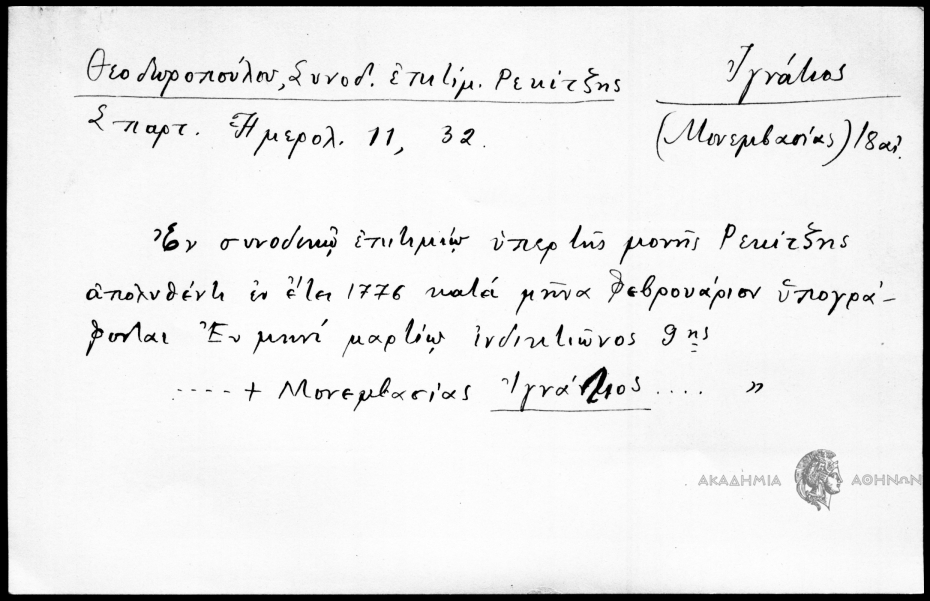 Θεοδωροπούλου, Συνοδ. ἐπιτίμ. Ρεκίτζης
Ἰγνάτιος
Σπαρτ. Ἡμερολ. 11, 32.
(Μονεμβασίας) 18 αἰ.
Ἐν συνοδικῷ ἐπιτιμίῳ ὑπερ τῆς μονῆς Ρεκίτζης
ἀπολυθέντι ἐν ἔτει 1776 κατά μῆνα Φεβρουάριον ὑπογρά-
φονται Ἐν μηνί μαρτίῳ ἰνδικτιῶνος 9ης
.... + Μονεμβασίας Ἰγνάτιος .... »
ΑΚΑΔΗΜΙΑ ΑΘΗΝΩΝ